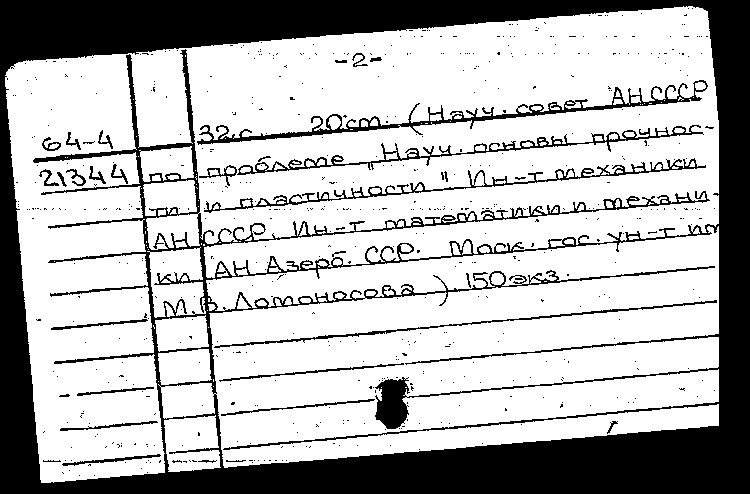 -2-
64-4 32 с. 20 см. (Науч. совет АН СССР
21344 по проблеме "Науч. основы прочнос-
ти и пластичности" Ин-т механики
АН СССР. Ин-т математики и механи-
ки АН Азерб. ССР. Моск. гос. ун-т им
М.В. Ломоносова). 150 экз.